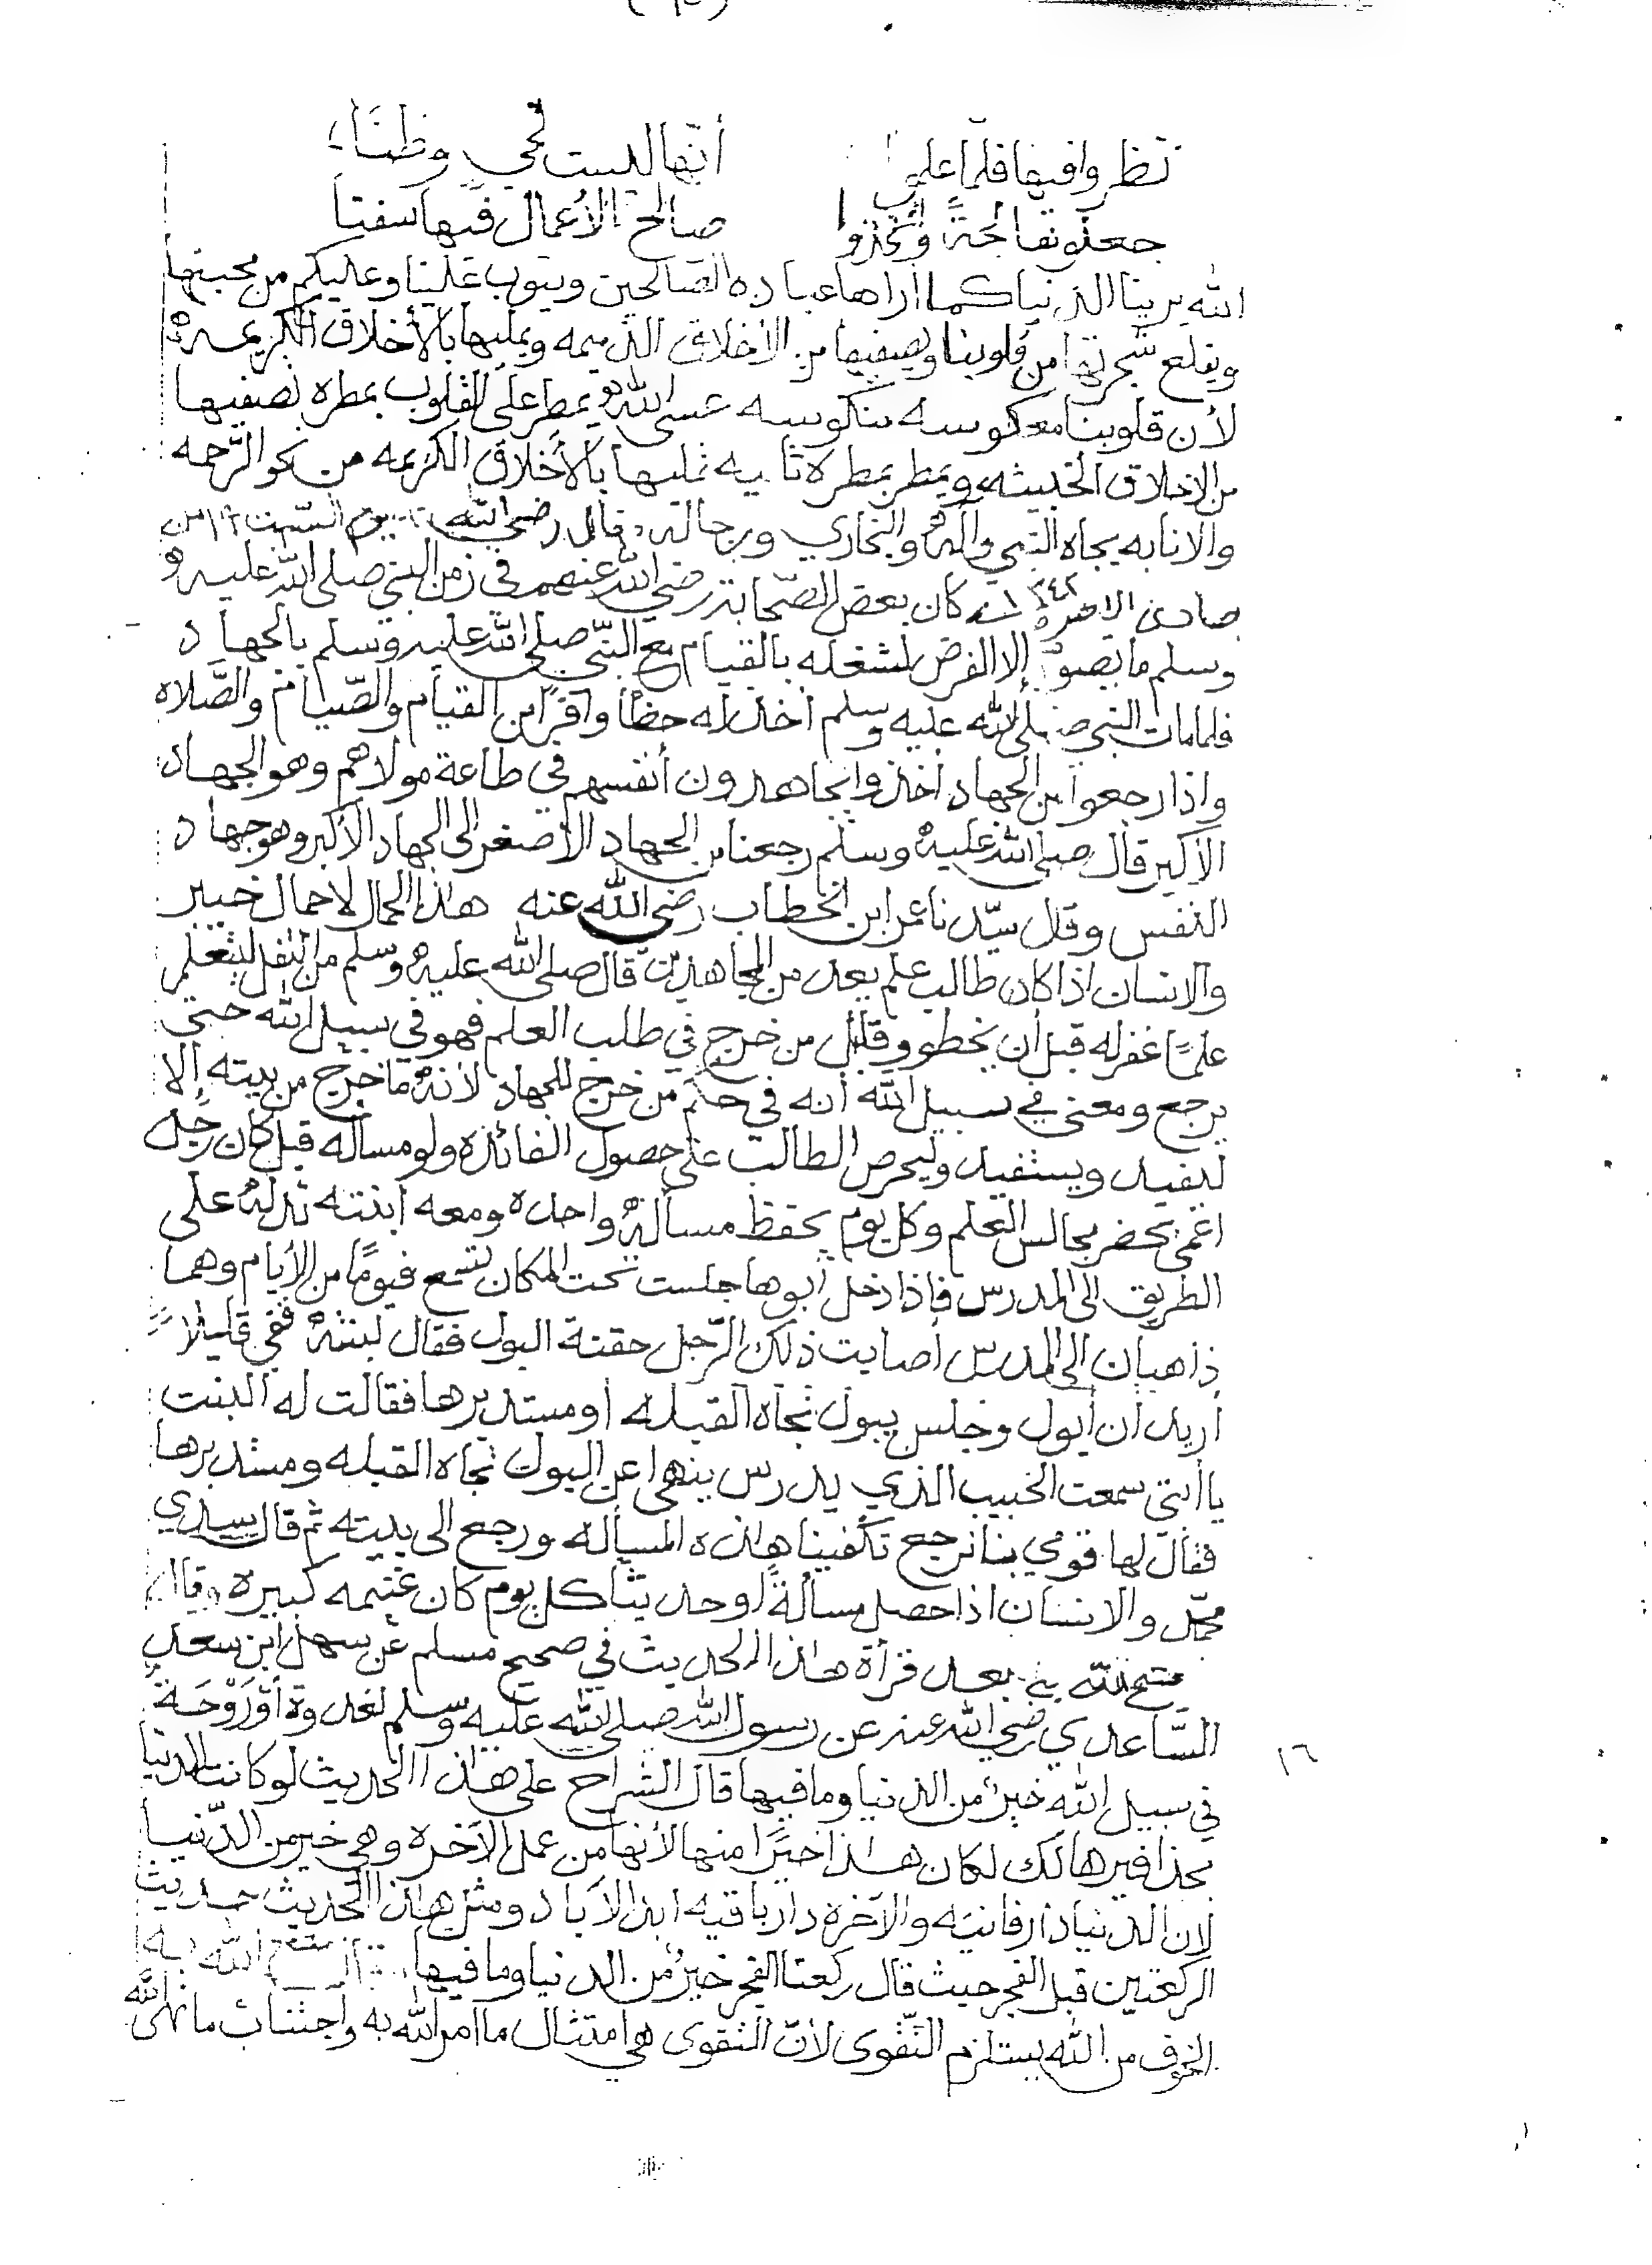 نظروا فيها فلما علموا أنّها ليست لحي وطنًا
جعلوها لجةً واتخذوا صالح الأعمال فيها سفنا
الله يرينا الدنيا كما اراها عباده الصالحين ويتوب علينا وعليكم من محبتها
ويقلع شجرتها من قلوبنا ويصفيها من الأخلاق الذميمه ويمليها بالأخلاق الكريمه
لأن قلوبنا معكوسه منكوسه عسى الله يمطر على القلوب بمطره تصفيها
من الاخلاق الخبيثه ويمطر بمطره ثانيه تمليها بالأخلاق الكريمه من نحو الرّحمه
والانابه بجاه النبي وآله والبخاري ورجاله، قال رضي الله يوم السّبت
جماد الاخره ١٣٤٢ كان بعض الصّحابة رضي الله عنهم في زمن النبي صلى الله عليه
وسلم ما يصوم إلا الفرض لشغله بالقيام مع النّبي صلى الله عليه وسلم بالجهاد
فلما مات النبي صلى الله عليه وسلم أخذ له حظًا وافرًا من القيام والصّيام والصّلاه
واذا رجعوا من الجهاد أخذوا يجاهدون أنفسهم في طاعة مولاهم وهو الجهاد
الأكبر قال صلى الله عليه وسلم رجعنا من الجهاد الأصغر إلى الجهاد الأكبر وهو جهاد
النفس وقال سيّدنا عمر ابن الخطاب رضي الله عنه هذا الحمال لا حمال خيبر
والانسان اذا كان طالب علم يعد من المجاهدين قال صلى الله عليه وسلم من انتقل ليتعلم
علمًا غفر له قبل أن يخطو وقال من خرج في طلب العلم فهو في سبيل الله حتى
يرجع ومعنى في سبيل الله أنه في حكم من خرج للجهاد لأنه ما خرج من بيته إلا
ليفيد ويستفيد وليحرص الطالب على حصول الفائده ولو مسأله قيل كان رجل
اعمى يحضر مجالس العلم وكل يوم يحفظ مسألة واحده ومعه ابنته تدله على
الطريق الى المدرس فاذا دخل أبوها جلست تحت المكان تسمع فيومًا من الأيام وهما
ذاهبان الى المدرس أصابت ذلك الرّجل حقنة البول فقال لبنته قفي قليلاً
أريد أن أبول وجلس يبول تجاه القبله أو مستدبرها فقالت له البنت
يا أبتي سمعت الحبيب الذي يدرس ينهى عن البول تجاه القبله ومستدبرها
فقال لها قومي بنا نرجع تكفينا هذه المسأله ورجع الى بيته ثم قال سيدي
محمّد والانسان اذا حصل مسألةً او حديثا كل يوم كان غنيمه كبيره وقال
متع الله به بعد قرأة هذا الحديث في صحيح مسلم عن سهل ابن سعد
السّاعدي رضي الله عنه عن رسول الله صلى الله عليه وسلم لغدوة أو رَوْحَة
١٦
في سبيل الله خيرٌ من الدنيا وما فيها قال الشراح على هذا الحديث لو كانت الدنيا
بحذافيرها لك لكان هذا خيرًا منها لأنها من عمل الآخره وهي خير من الدّنيا
لان الدنيا دار فانيه والآخره دار باقيه ابد الآباد ومثل هذا الحديث حديث
الركعتين قبل الفجر حيث قال ركعتا الفجر خيرٌ من الدنيا وما فيها قال متع الله به
الخوف من الله يستلزم التّقوى لأنّ التقوى هي امتثال ما أمر الله به واجتناب ما نهى الله